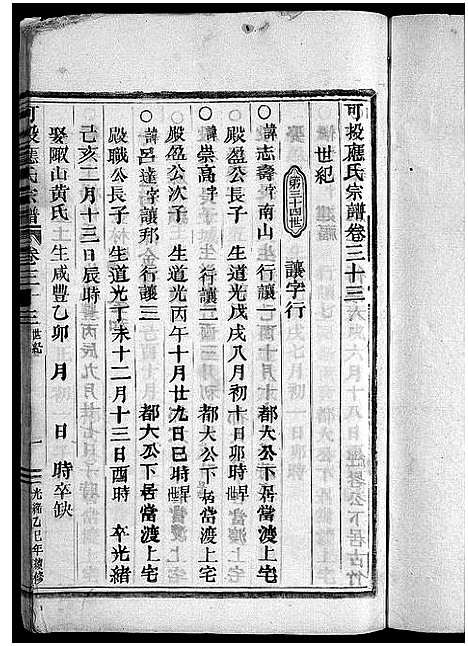 可投應氏宗譜卷三十三
世紀
第三十四世
讓字行
○諱志壽字南山 行讓一 都大公下居當渡上宅
殿盈公長子 生道光戊戌八月初十日卯時
○諱崇高字 行讓二 都大公下居當渡上宅
殿盈公次子 生道光丙午十月廿九日巳時
○諱呂達字讓邦 金行讓三 都大公下居當渡上宅
殿職公長子 生道光丁未十二月十三日酉時 卒光緒
己亥二月十三日辰時
娶陬山黃氏 生咸豐乙卯 月 日 時卒缺
可投應氏宗譜 卷三十三 世紀 一 光緒乙巳年續修